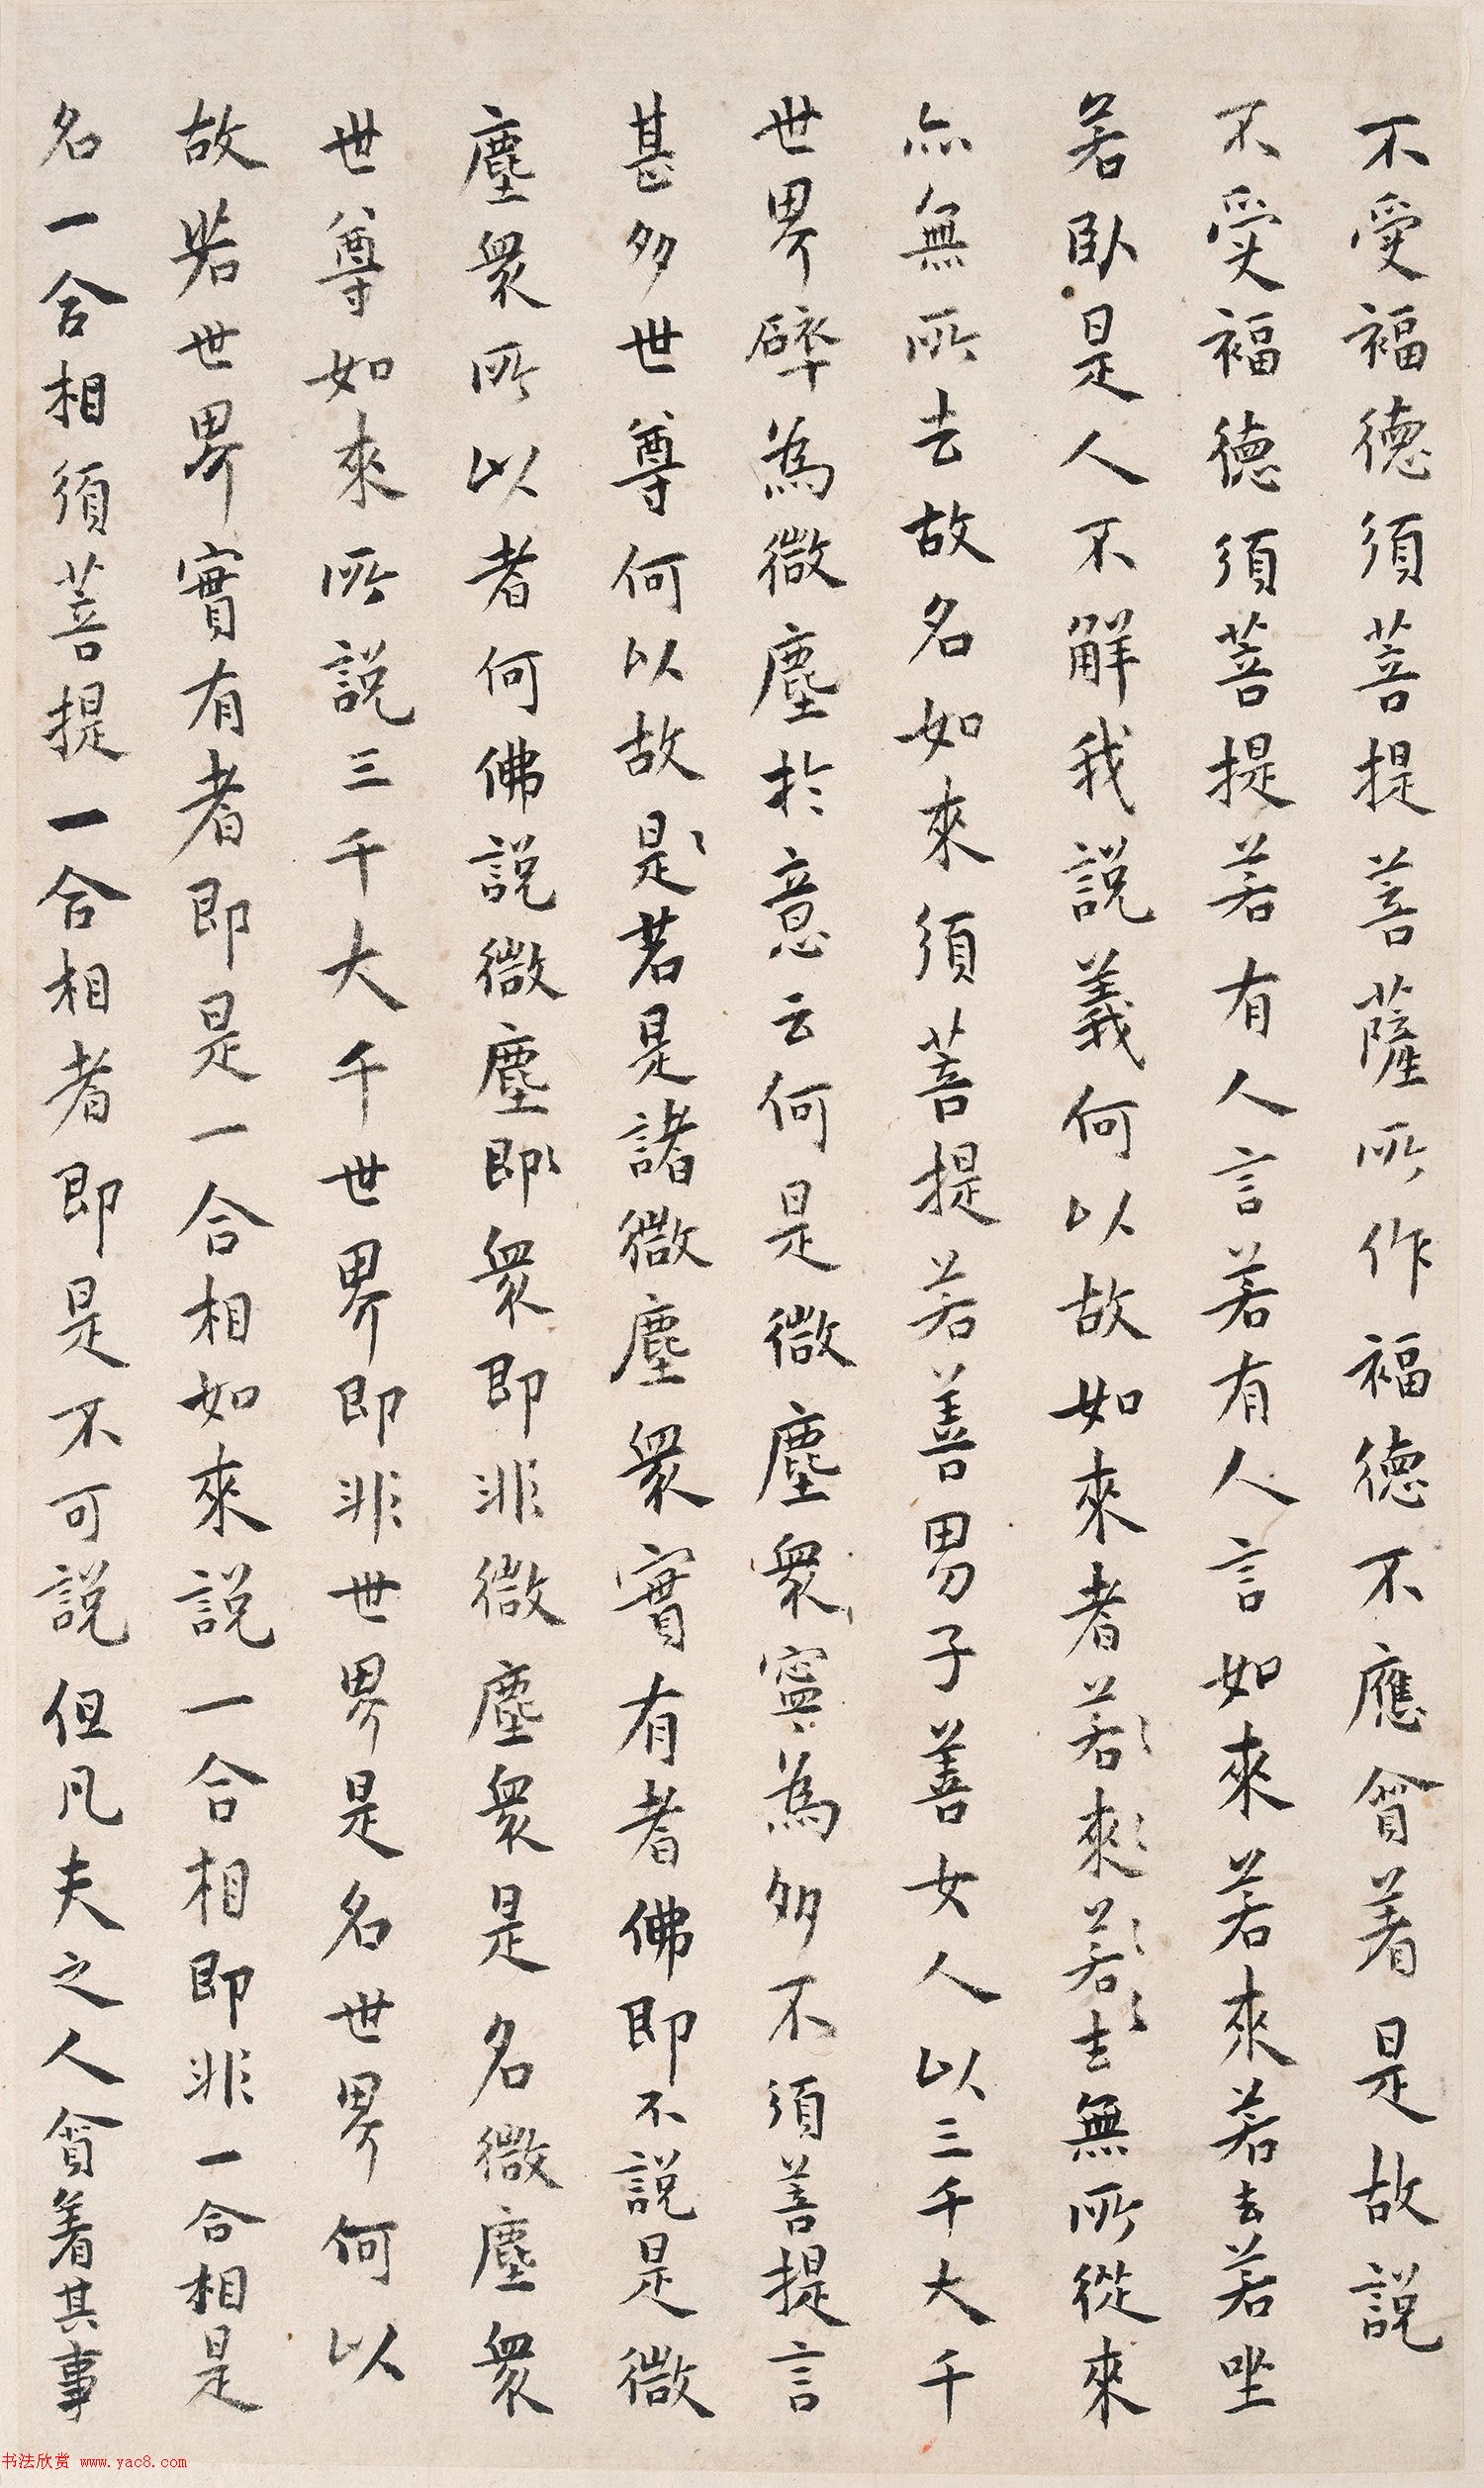 不受福德須菩提菩薩所作福德不應貪著是故說
不受福德須菩提若有人言若有人言如來若來若去若坐
若臥是人不解我說義何以故如來者若來若去無所從來
亦無所去故名如來須菩提若善男子善女人以三千大千
世界碎為微塵於意云何是微塵眾寧為多不須菩提言
甚多世尊何以故是若是諸微塵眾實有者佛即不說是微
塵眾所以者何佛說微塵即眾即非微塵眾是名微塵眾
世尊如來所說三千大千世界即非世界是名世界何以
故若世界實有者即是一合相如來說一合相即非一合相是
名一合相須菩提一合相者即是不可說但凡夫之人貪著其事
书法欣赏 www.yac8.com